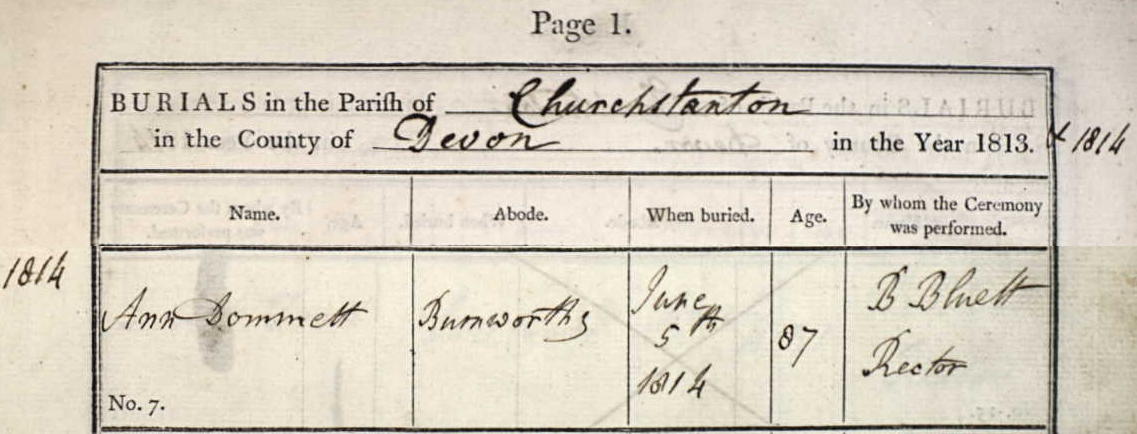 Page 1.
BURIALS in the Parish of Churchstanton
in the County of Devon in the Year 1813. & 1814
Name. Abode. When buried. Age. By whom the Ceremony was performed.
1814
Ann Dommett Burnworthy June 5th 1814 87 B Bluett Rector
No. 7.